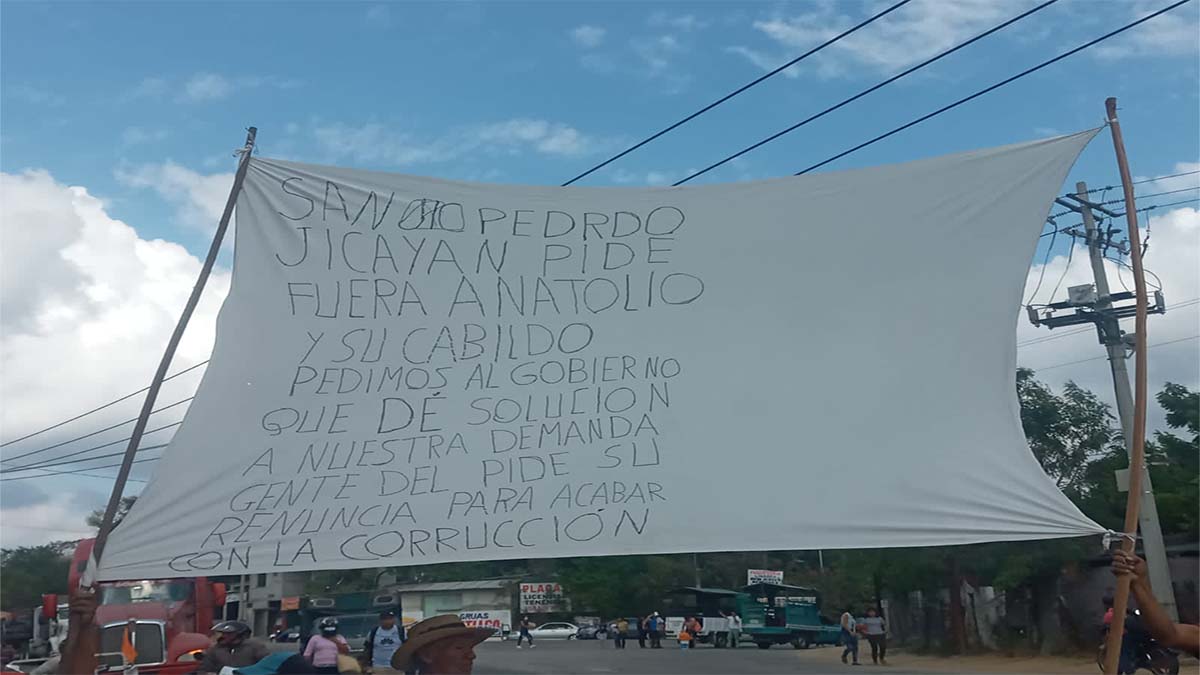 SAN PEDRDO
JICAYAN PIDE
FUERA ANATOLIO
Y SU CABILDO
PEDIMOS AL GOBIERNO
QUE DÉ SOLUCION
A NUESTRA DEMANDA
GENTE DEL PIDE SU
RENUNCIA PARA ACABAR
CON LA CORRUCCIÓN
PLACA
LICENC
TENE
GRUAS